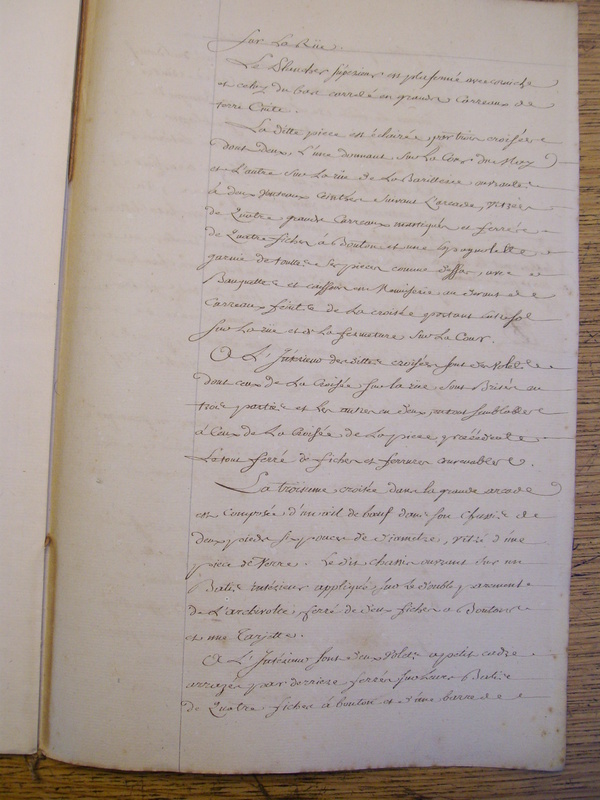 sur La Rüe.
Le Plancher supérieur est plafonné avec corniche
et celuy du bas carrelé en grands Carreaux de
terre Cuite.
La ditte piece est éclairée par trois croisées
dont deux, L'une donnant sur La Cour du May
et L'autre sur La rüe de La Barillerie ouvrants
à deux Venteaux Cintrés suivant L'arcade, vitrés
de Quatre grands Carreaux et ferrés
de Quatre fiches à Bouton et une Espagnolette
garnie de toutes ses pieces comme dessus, avec
Banquettes et en Menuiserie au devant de
Carreaux de La croisée
sur La rüe et de La fermeture sur La Cour.
A L'Intérieur des dittes croisées sont des Volets
dont ceux de La Croisée sur La rüe, sont Brisés en
trois parties et Les autres en deux, semblables
à Ceux de La Croisée de La piece précédente
Le tout ferré de fiches et ferrures convenables.
La troisieme croisée dans la grande arcade
est composée d'un œil de bœuf dans son Chassis de
deux pieds six pouces de diametre, vitré d'une
piece de Verre. Le dit chassis ouvrant sur un
Batis intérieur appliqué sur le double parement
de L'archivolte, ferré de deux fiches à Boutons
et une Targette.
A L'Intérieur sont deux Volets a petit cadre
arrazés par derriere ferrés sur leurs Batis
de Quatre fiches à bouton et d'une barre de